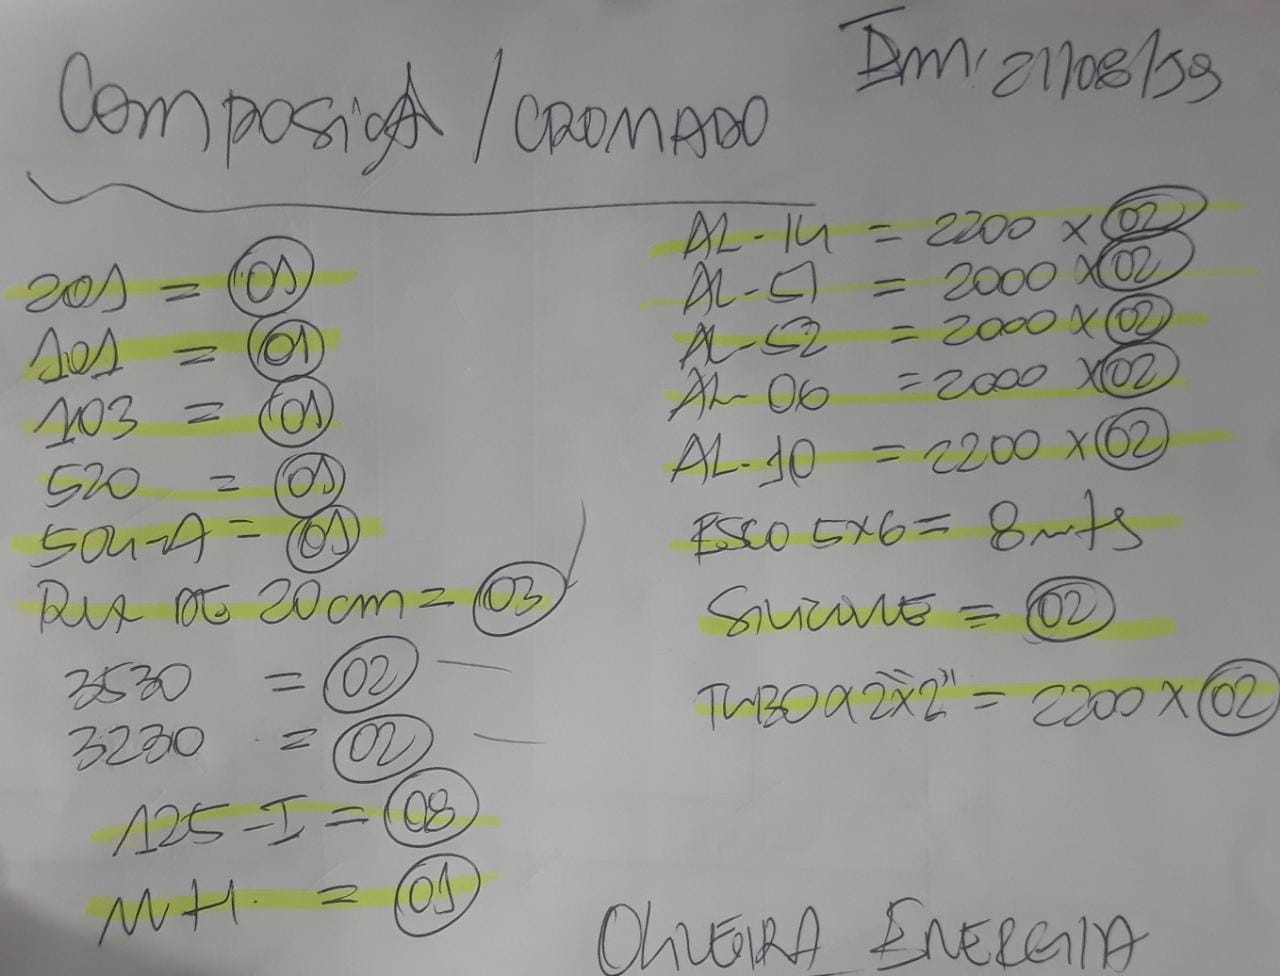 Composiçà / CROMADO
Em: 21/08/19
201 = 01
101 = 01
103 = 01
520 = 01
504-A = 01
Pux DE 20cm = 03
3530 = 02
3230 = 02
125-I = 08
MH. = 01
AL-14 = 2200 x 02
AL-51 = 2000 x 02
AL-52 = 2000 x 02
AL-06 = 2000 x 02
AL-10 = 2200 x 02
ESCO 5x6 = 8 mts
SILICONE = 02
TUBO 2"x2" = 2200 x 02
OLIVEIRA ENERGIA